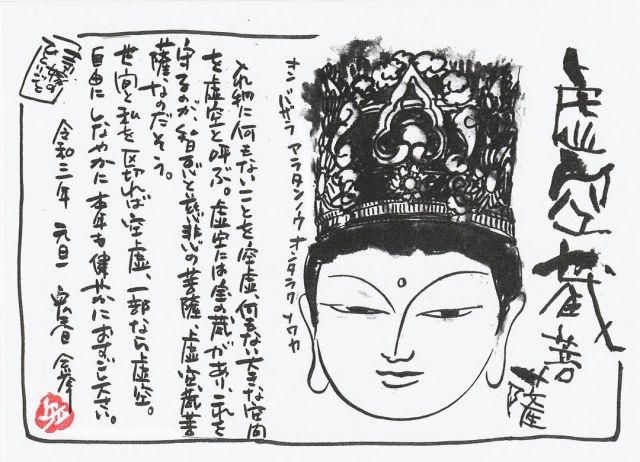 虚空蔵菩薩
オン バザラ アラタンノウ オンタラク ソワカ
入れ物に何もないことを空虚、何もない大きな空間
を虚空と呼ぶ。虚空には宝の蔵があり、これを
守るのが、智恵と慈悲の菩薩、虚空蔵菩
薩なのだそう。
世間と私を区切れば空虚、一部なら虚空。
自由にしなやかに本年も健やかにおすごし下さい。
令和三年 元旦